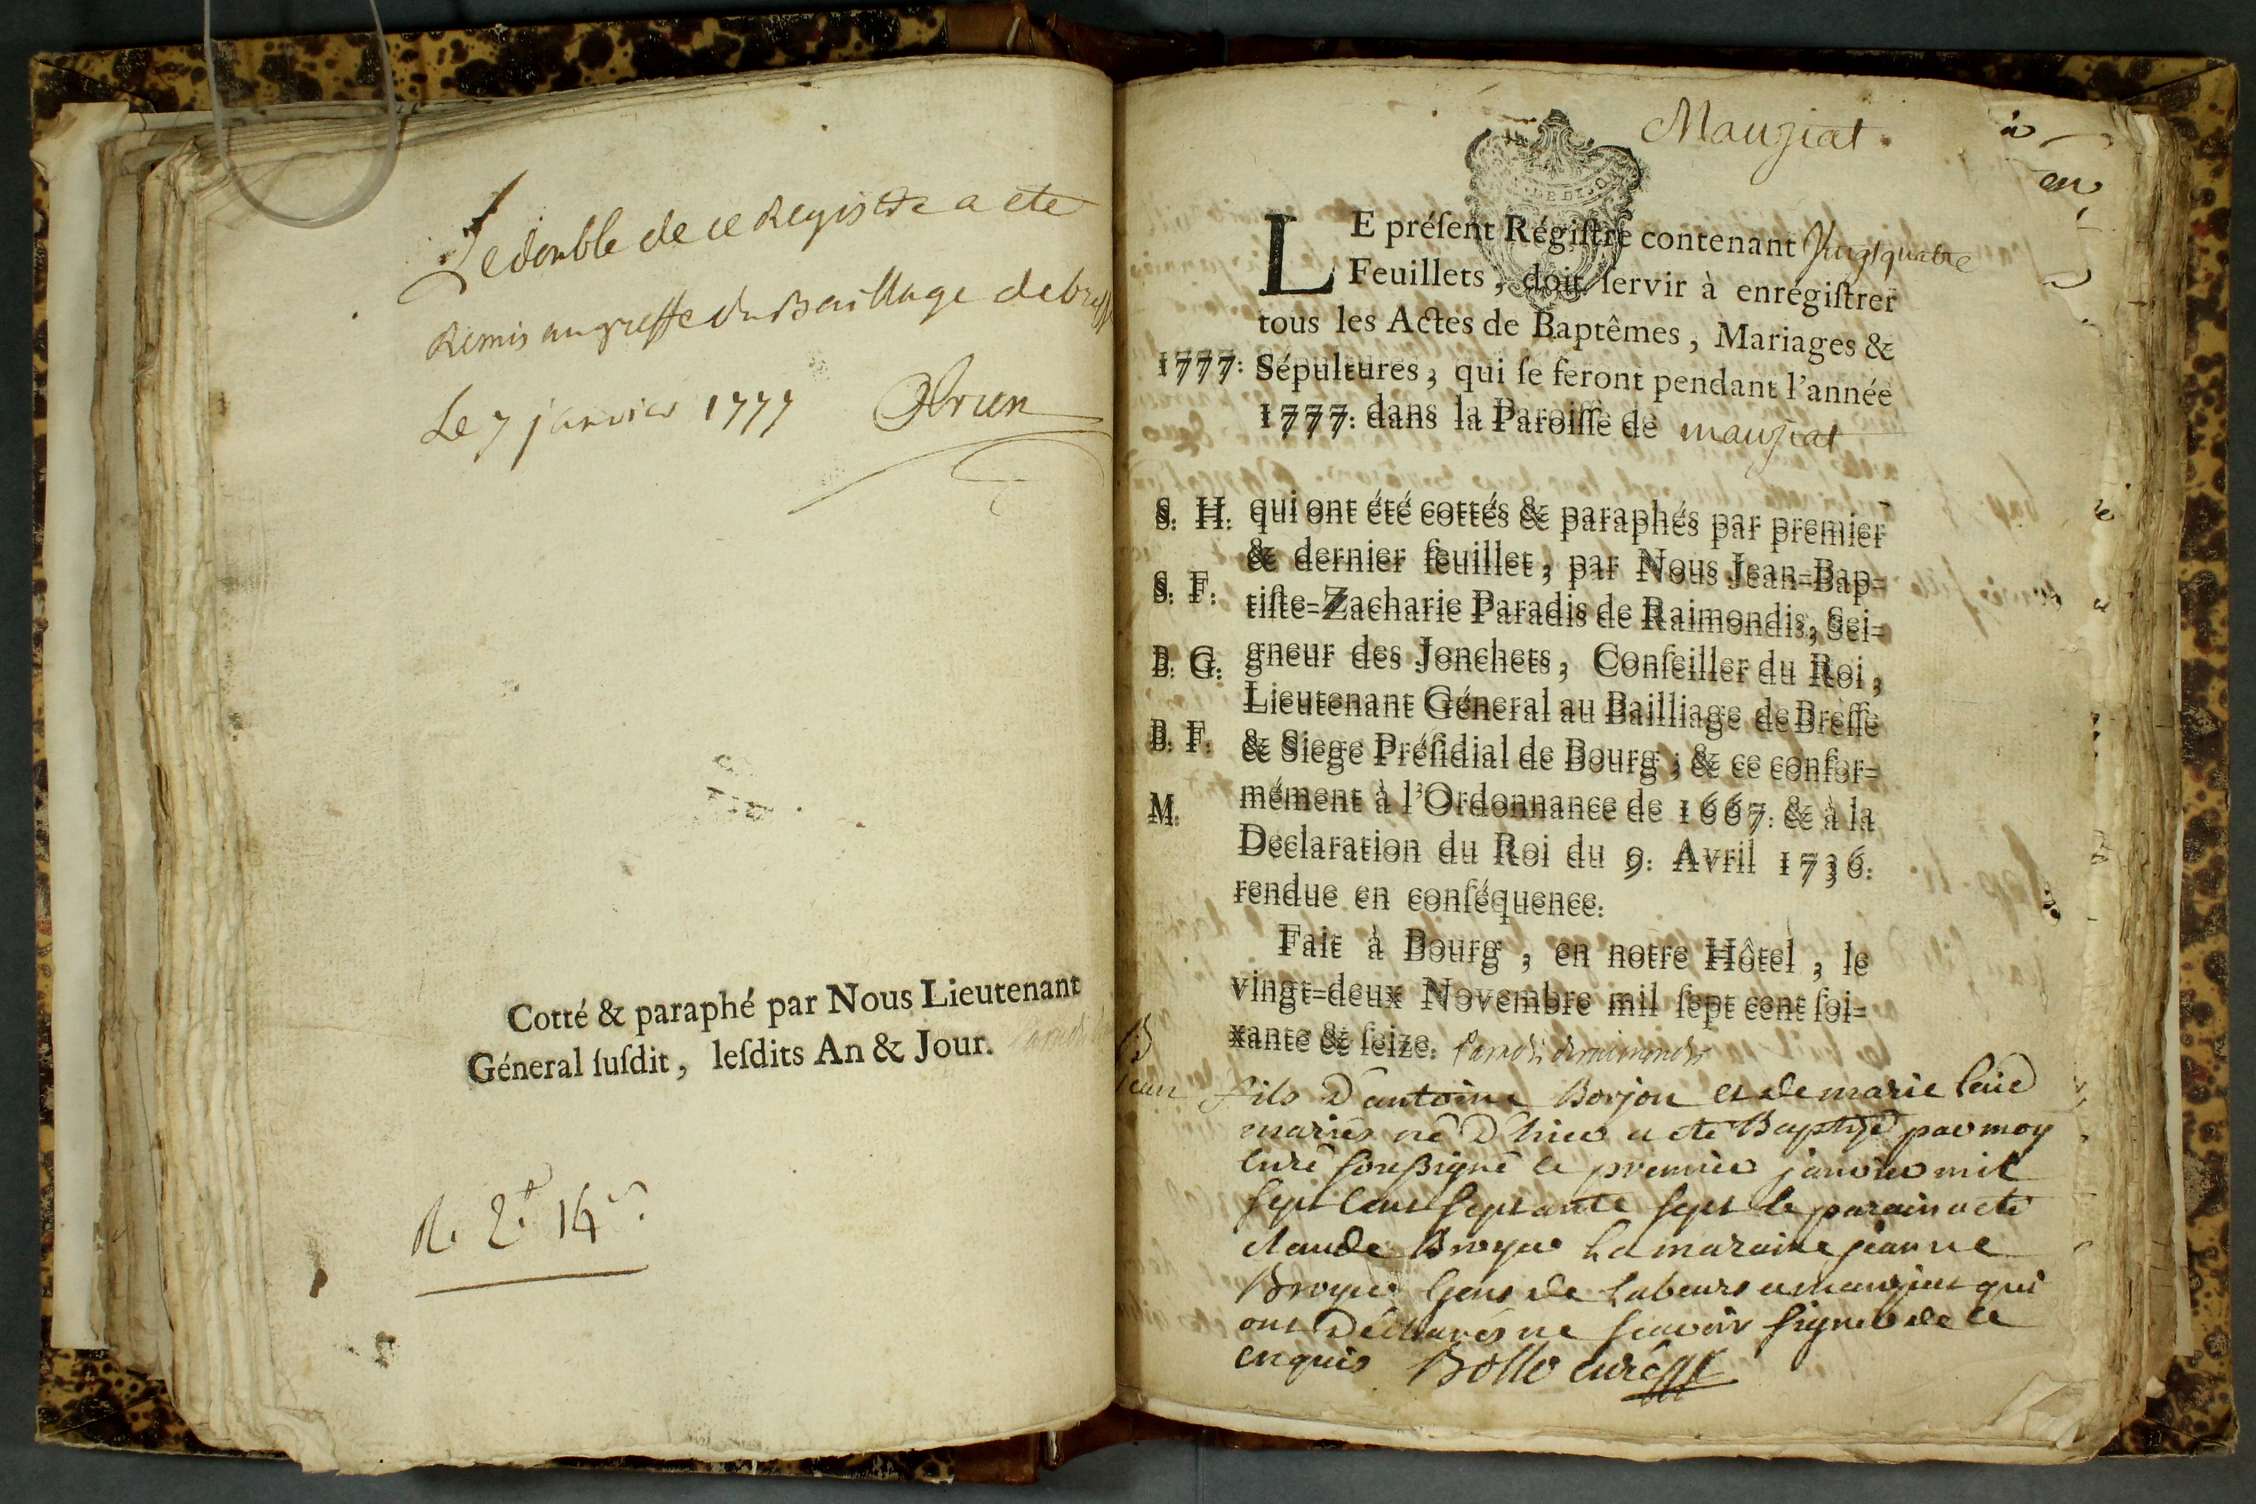 Le double de ce Registre a ete
Remis au greffe du Bailliage de bresse
Le 7 janvier 1777
Cotté & paraphé par Nous Lieutenant
Géneral ſuſdit, leſdits An & Jour.
R. 2. 14
Mauziat.
LE préſent Régiſtre contenant Vingtquatre
Feuillets, doit ſervir à enrégiſtrer
tous les Actes de Baptêmes, Mariages &
1777: Sépultures, qui ſe feront pendant l'année
1777. dans la Paroiſſe de mauziat
S. H. qui ont été cottés & paraphés par premier
& dernier feuillet, par Nous Jean-Bap-
S. F. tiſte-Zacharie Paradis de Raimondis, Sei-
B. G. gneur des Jonchets, Conſeiller du Roi,
Lieutenant Géneral au Bailliage de Breſſe
B. F. & Siege Préſidial de Bourg; & ce confor-
M. mément à l'Ordonnance de 1667. & à la
Declaration du Roi du 9. Avril 1736.
rendue en conſéquence.
Fait à Bourg, en notre Hôtel, le
vingt-deux Novembre mil ſept cent ſoi-
xante & ſeize. Paradis de raimondis
B
jean fils D'antoine Borjon et de marie
mariés né D'hier a eté Baptisé par moy
curé soussigné le premier janvier mil
sept cent septante sept le parain a eté
claude Broyer La maraine jeanne
Broyer gens de labeurs a mauziat qui
ont Déclarés ne scavoir signer de ce
enquis curé